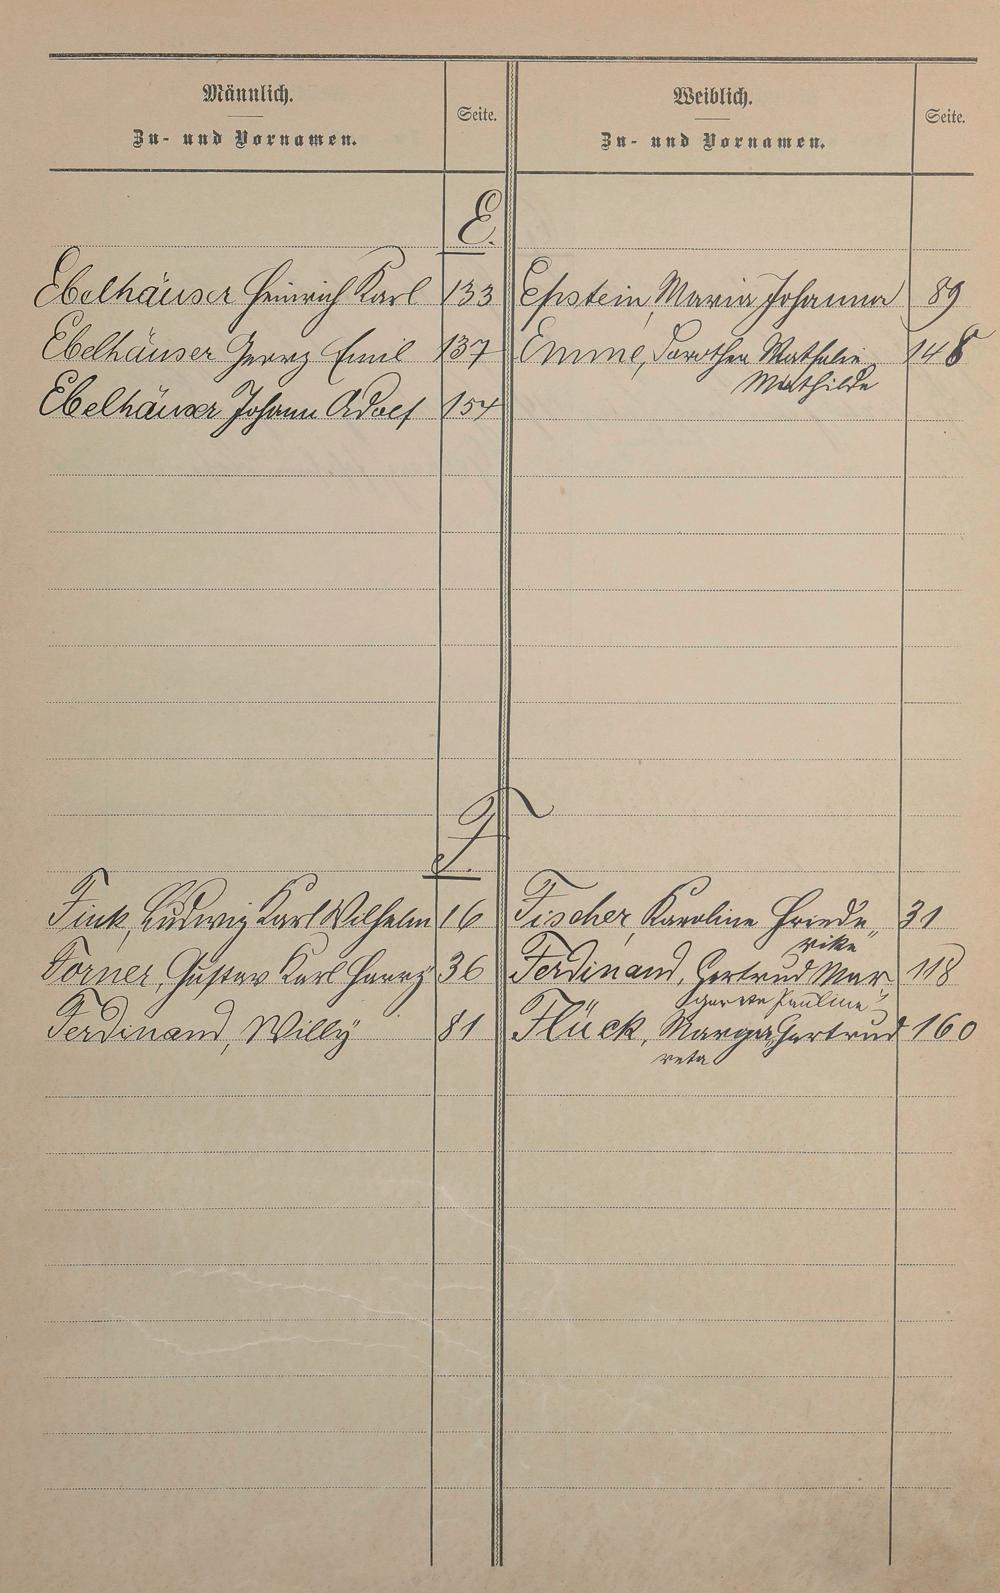 Männlich.
Zu- und Vornamen.
Seite.
Weiblich.
Zu- und Vornamen.
Seite.
E.
Ebelhäuser Heinrich Karl 133
Ebelhäuser Georg Emil 137
Ebelhäuser Johann Adolf 154
Epstein, Maria Johanna 89
Emme, Dorothea Mathilde 148
Mathilde
F.
Fink, Ludwig Karl Wilhelm 16
Forner, Gustav Karl Harry 36
Ferdinand, Willy 81
Fischer, Karoline Friede„ 31
rike"
Ferdinand, Gertrud Mar- 118
garete Pauline
Flück, Marga, Gertrud 160
reta